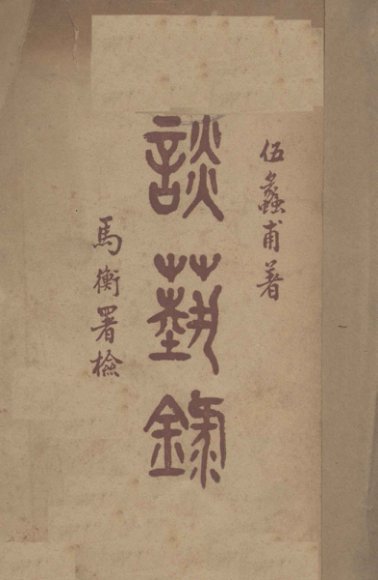 伍蠡甫著
談藝錄
馬衡署檢